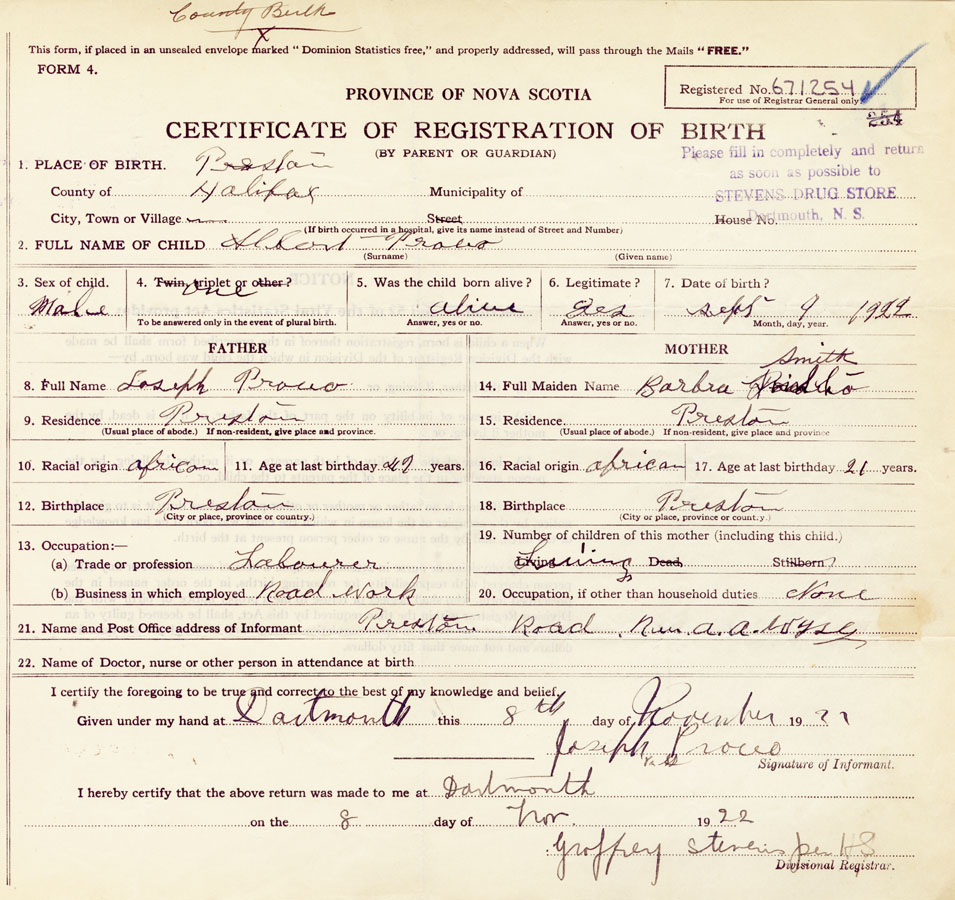 County Birth
This form, if placed in an unsealed envelope marked "Dominion Statistics free," and properly addressed, will pass through the Mails "FREE."
FORM 4.
Registered No. 671254
For use of Registrar General only
254
PROVINCE OF NOVA SCOTIA
CERTIFICATE OF REGISTRATION OF BIRTH
(BY PARENT OR GUARDIAN)
Please fill in completely and return
as soon as possible to
STEVENS DRUG STORE
Dartmouth, N. S.
1. PLACE OF BIRTH. Preston
County of Halifax Municipality of
City, Town or Village Street House No.
(If birth occurred in a hospital, give its name instead of Street and Number)
2. FULL NAME OF CHILD Albert Provo
(Surname) (Given name)
3. Sex of child. 4. Twin, triplet or other? 5. Was the child born alive? 6. Legitimate? 7. Date of birth?
Male one alive yes sept 9 1922
To be answered only in the event of plural birth. Answer, yes or no. Answer, yes or no. Month, day, year.
FATHER MOTHER
Smith
8. Full Name Joseph Provo 14. Full Maiden Name Barbra
9. Residence Preston 15. Residence Preston
(Usual place of abode.) If non-resident, give place and province. (Usual place of abode.) If non-resident, give place and province
10. Racial origin african 11. Age at last birthday 49 years. 16. Racial origin african 17. Age at last birthday 21 years.
12. Birthplace Preston 18. Birthplace Preston
(City or place, province or country.) (City or place, province or country.)
13. Occupation:— 19. Number of children of this mother (including this child.)
(a) Trade or profession Labourer Living Living Dead Stillborn?
(b) Business in which employed Road work 20. Occupation, if other than household duties None
21. Name and Post Office address of Informant Preston Road A. A. Wyse
22. Name of Doctor, nurse or other person in attendance at birth
I certify the foregoing to be true and correct to the best of my knowledge and belief.
Given under my hand at Dartmouth this 8th day of November 1922
Joseph Provo
Signature of Informant.
I hereby certify that the above return was made to me at Dartmouth
on the 8 day of Nov. 1922
Groffrey Stevens per HS
Divisional Registrar.